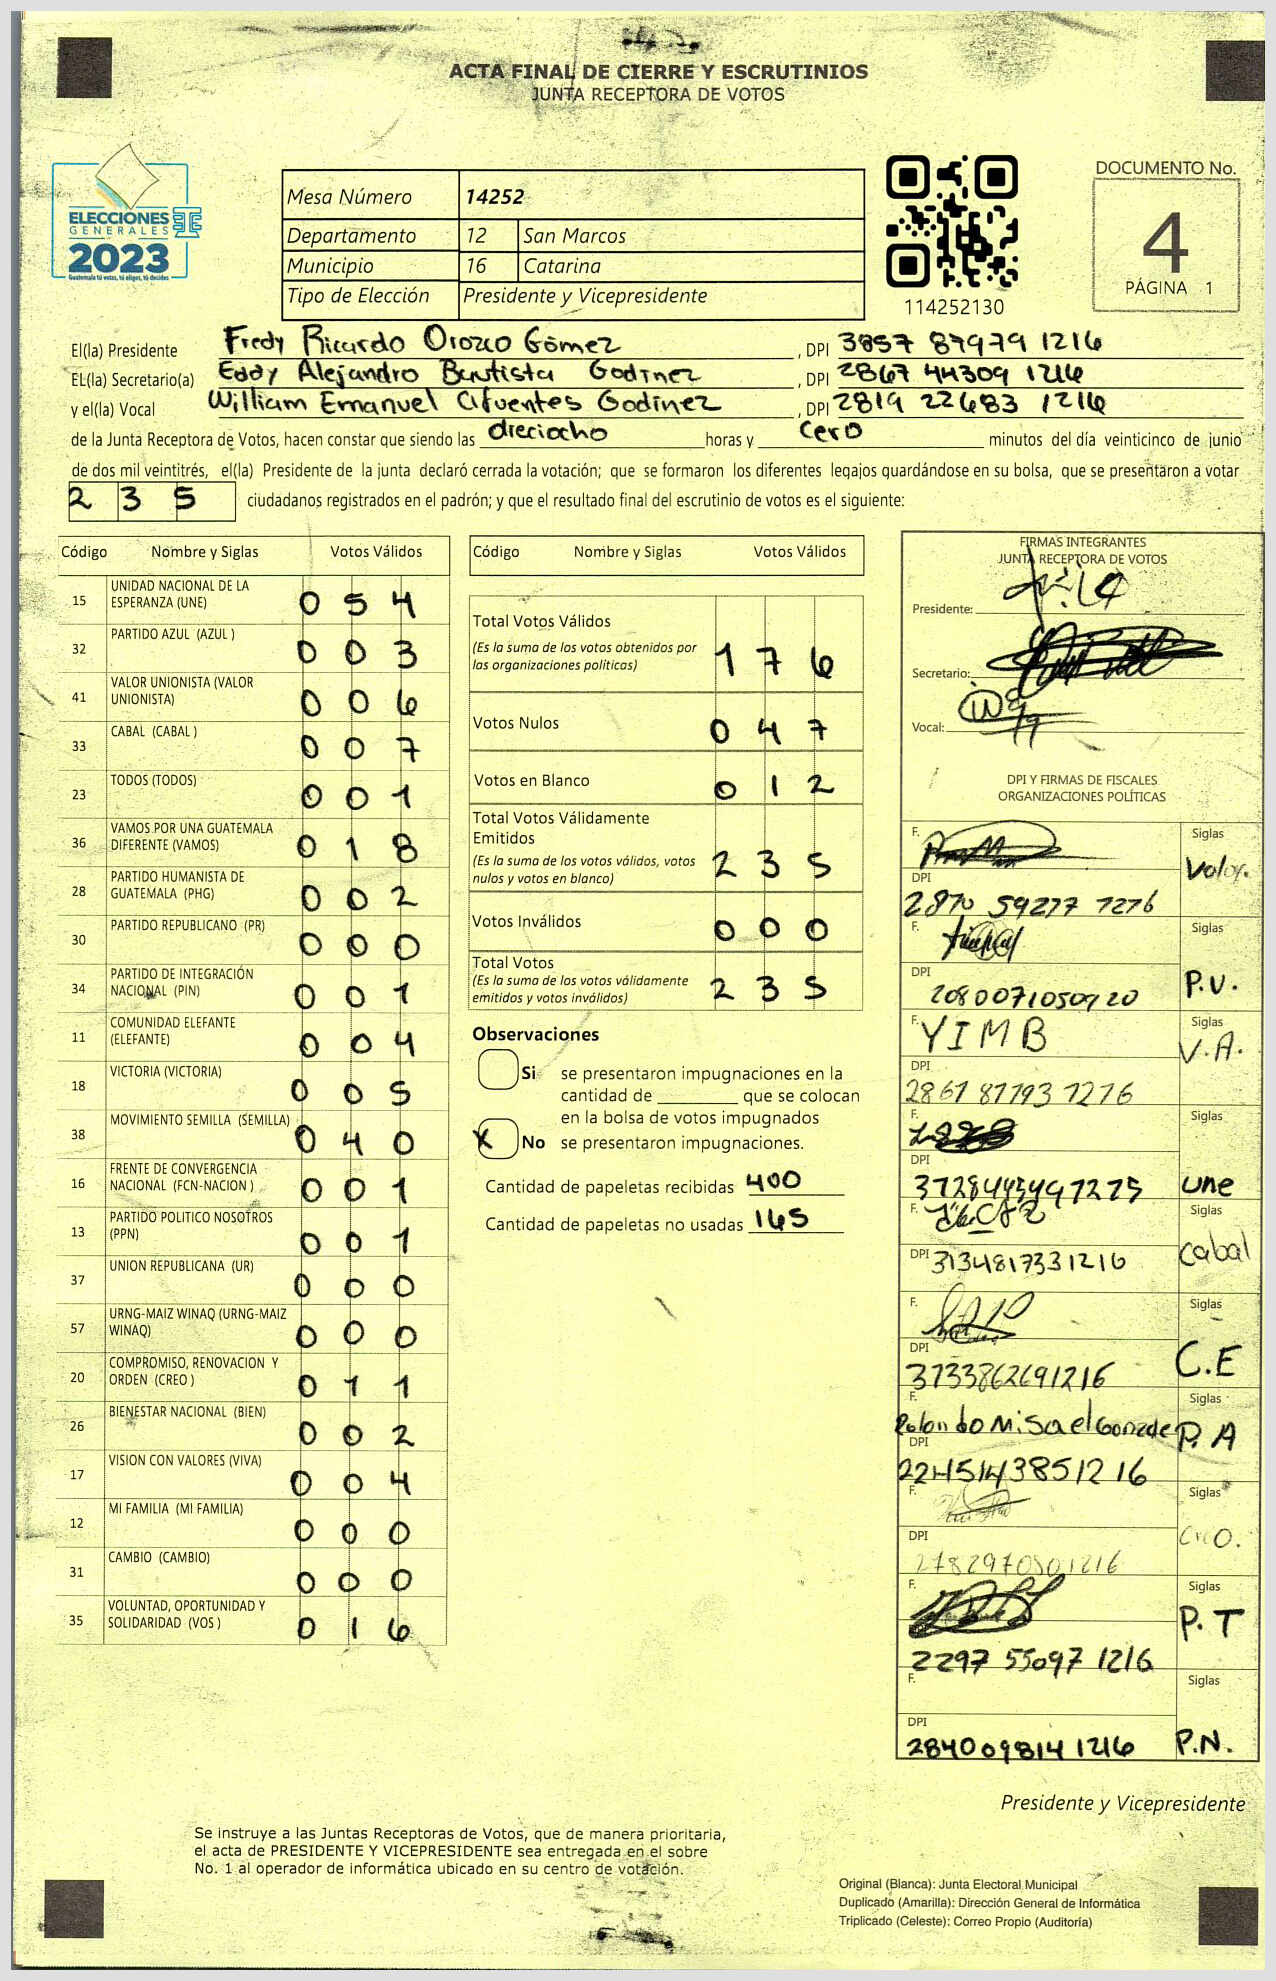 ACTA FINAL DE CIERRE Y ESCRUTINIOS
JUNTA RECEPTORA DE VOTOS
ELECCIONES
GENERALES
2023
Guatemala tú votas, tú eliges, tú decides
Mesa Número 14252
Departamento 12 San Marcos
Municipio 16 Catarina
Tipo de Elección Presidente y Vicepresidente
114252130
DOCUMENTO No.
4
PÁGINA 1
El(la) Presidente Fredy Ricardo Orozco Gómez , DPI 3857 87979 1216
EL(la) Secretario(a) Eddy Alejandro Bautista Godinez , DPI 2867 44309 1216
y el(la) Vocal William Emanuel Cifuentes Godinez , DPI 2819 22683 1216
de la Junta Receptora de Votos, hacen constar que siendo las dieciocho horas y cero minutos del día veinticinco de junio
de dos mil veintitrés, el(la) Presidente de la junta declaró cerrada la votación; que se formaron los diferentes legajos guardándose en su bolsa, que se presentaron a votar
235 ciudadanos registrados en el padrón; y que el resultado final del escrutinio de votos es el siguiente:
Código Nombre y Siglas Votos Válidos
15 UNIDAD NACIONAL DE LA ESPERANZA (UNE) 054
32 PARTIDO AZUL (AZUL ) 003
41 VALOR UNIONISTA (VALOR UNIONISTA) 006
33 CABAL (CABAL ) 007
23 TODOS (TODOS) 001
36 VAMOS POR UNA GUATEMALA DIFERENTE (VAMOS) 018
28 PARTIDO HUMANISTA DE GUATEMALA (PHG) 002
30 PARTIDO REPUBLICANO (PR) 000
34 PARTIDO DE INTEGRACIÓN NACIONAL (PIN) 001
11 COMUNIDAD ELEFANTE (ELEFANTE) 004
18 VICTORIA (VICTORIA) 005
38 MOVIMIENTO SEMILLA (SEMILLA) 040
16 FRENTE DE CONVERGENCIA NACIONAL (FCN-NACION ) 001
13 PARTIDO POLITICO NOSOTROS (PPN) 001
37 UNION REPUBLICANA (UR) 000
57 URNG-MAIZ WINAQ (URNG-MAIZ WINAQ) 000
20 COMPROMISO, RENOVACION Y ORDEN (CREO ) 011
26 BIENESTAR NACIONAL (BIEN) 002
17 VISION CON VALORES (VIVA) 004
12 MI FAMILIA (MI FAMILIA) 000
31 CAMBIO (CAMBIO) 000
35 VOLUNTAD, OPORTUNIDAD Y SOLIDARIDAD (VOS ) 016
Código Nombre y Siglas Votos Válidos
Total Votos Válidos 176
(Es la suma de los votos obtenidos por
las organizaciones políticas)
Votos Nulos 047
Votos en Blanco 012
Total Votos Válidamente
Emitidos 235
(Es la suma de los votos válidos, votos
nulos y votos en blanco)
Votos Inválidos 000
Total Votos 235
(Es la suma de los votos válidamente
emitidos y votos inválidos)
Observaciones
Si se presentaron impugnaciones en la
cantidad de ________ que se colocan
en la bolsa de votos impugnados
X No se presentaron impugnaciones.
Cantidad de papeletas recibidas 400
Cantidad de papeletas no usadas 165
FIRMAS INTEGRANTES
JUNTA RECEPTORA DE VOTOS
Presidente:
Secretario:
Vocal:
DPI Y FIRMAS DE FISCALES
ORGANIZACIONES POLÍTICAS
F. Siglas Valor.
DPI 2870 59277 1216
F. Siglas P.V.
DPI 2080071050920
F. YIMB Siglas V.A.
DPI 2861 81793 1216
F. Siglas une
DPI
F. Siglas Cabal
DPI 3134817331216
F. Siglas C.E
DPI 3733862691216
F. Rolando Misael Siglas P.A
DPI 2245143851216
F. Siglas CreO.
DPI 2782970501216
F. Siglas P.T
2297 55097 1216
F. Siglas P.N.
DPI 2840098141216
Presidente y Vicepresidente
Se instruye a las Juntas Receptoras de Votos, que de manera prioritaria,
el acta de PRESIDENTE Y VICEPRESIDENTE sea entregada en el sobre
No. 1 al operador de informática ubicado en su centro de votación.
Original (Blanca): Junta Electoral Municipal
Duplicado (Amarilla): Dirección General de Informática
Triplicado (Celeste): Correo Propio (Auditoría)